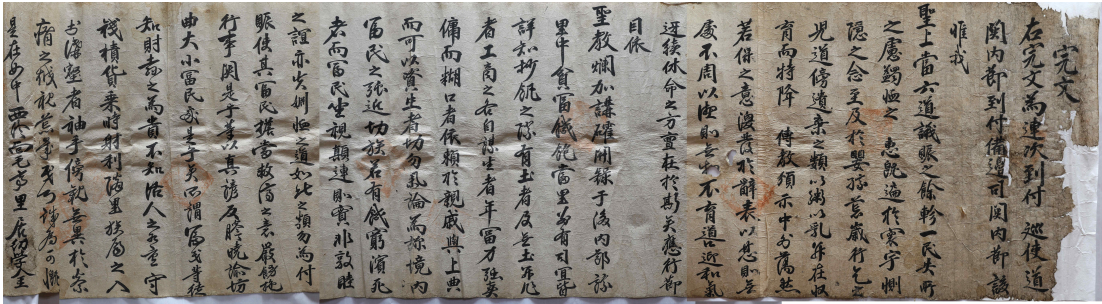 完文
右完文爲連次到付 巡使道
関内節到付備邊司関内節該
惟我
聖上當六道議賑之餘軫一民失所
之慮蠲恤之 惠旣遍於寰宇惻
隱之念至及於嬰孩荒歲行乞之
児道傍遺棄之類以粥以乳幷在收
育而特降 傳敎須示中外藹然
若保之意溢發於辭表以惠則無
處不周以澤則無不育逬迎和氣
迓續休命之方亶在於斯矣應行節
目依
聖敎爛加講確開錄于後内節該
里中貧富饑飽當里爲有司宜皆
詳知抄飢之際有土者及無土而
者工商之各自聊生者年富力強奐
傭而糊口者依賴於親戚與上典
而可以資生者切勿氣論爲旀境内
富民之強近切族若有餓窮濱死
者而富民坐視顚連則實非敦睦
之誼亦失惻恤之道如此之類勿爲付
賑使其富民擔當救濟之意嚴飭施
行事関是乎等以眞諺反謄曉諭坊
曲大小富民家是乎矣所謂富戶昔徒
知財穀之爲貴不知活人之爲重守
錢積貨乘時射利落里族屬之入
於溝壑者袖手傍觀無異於秦
瘠之
是在如中